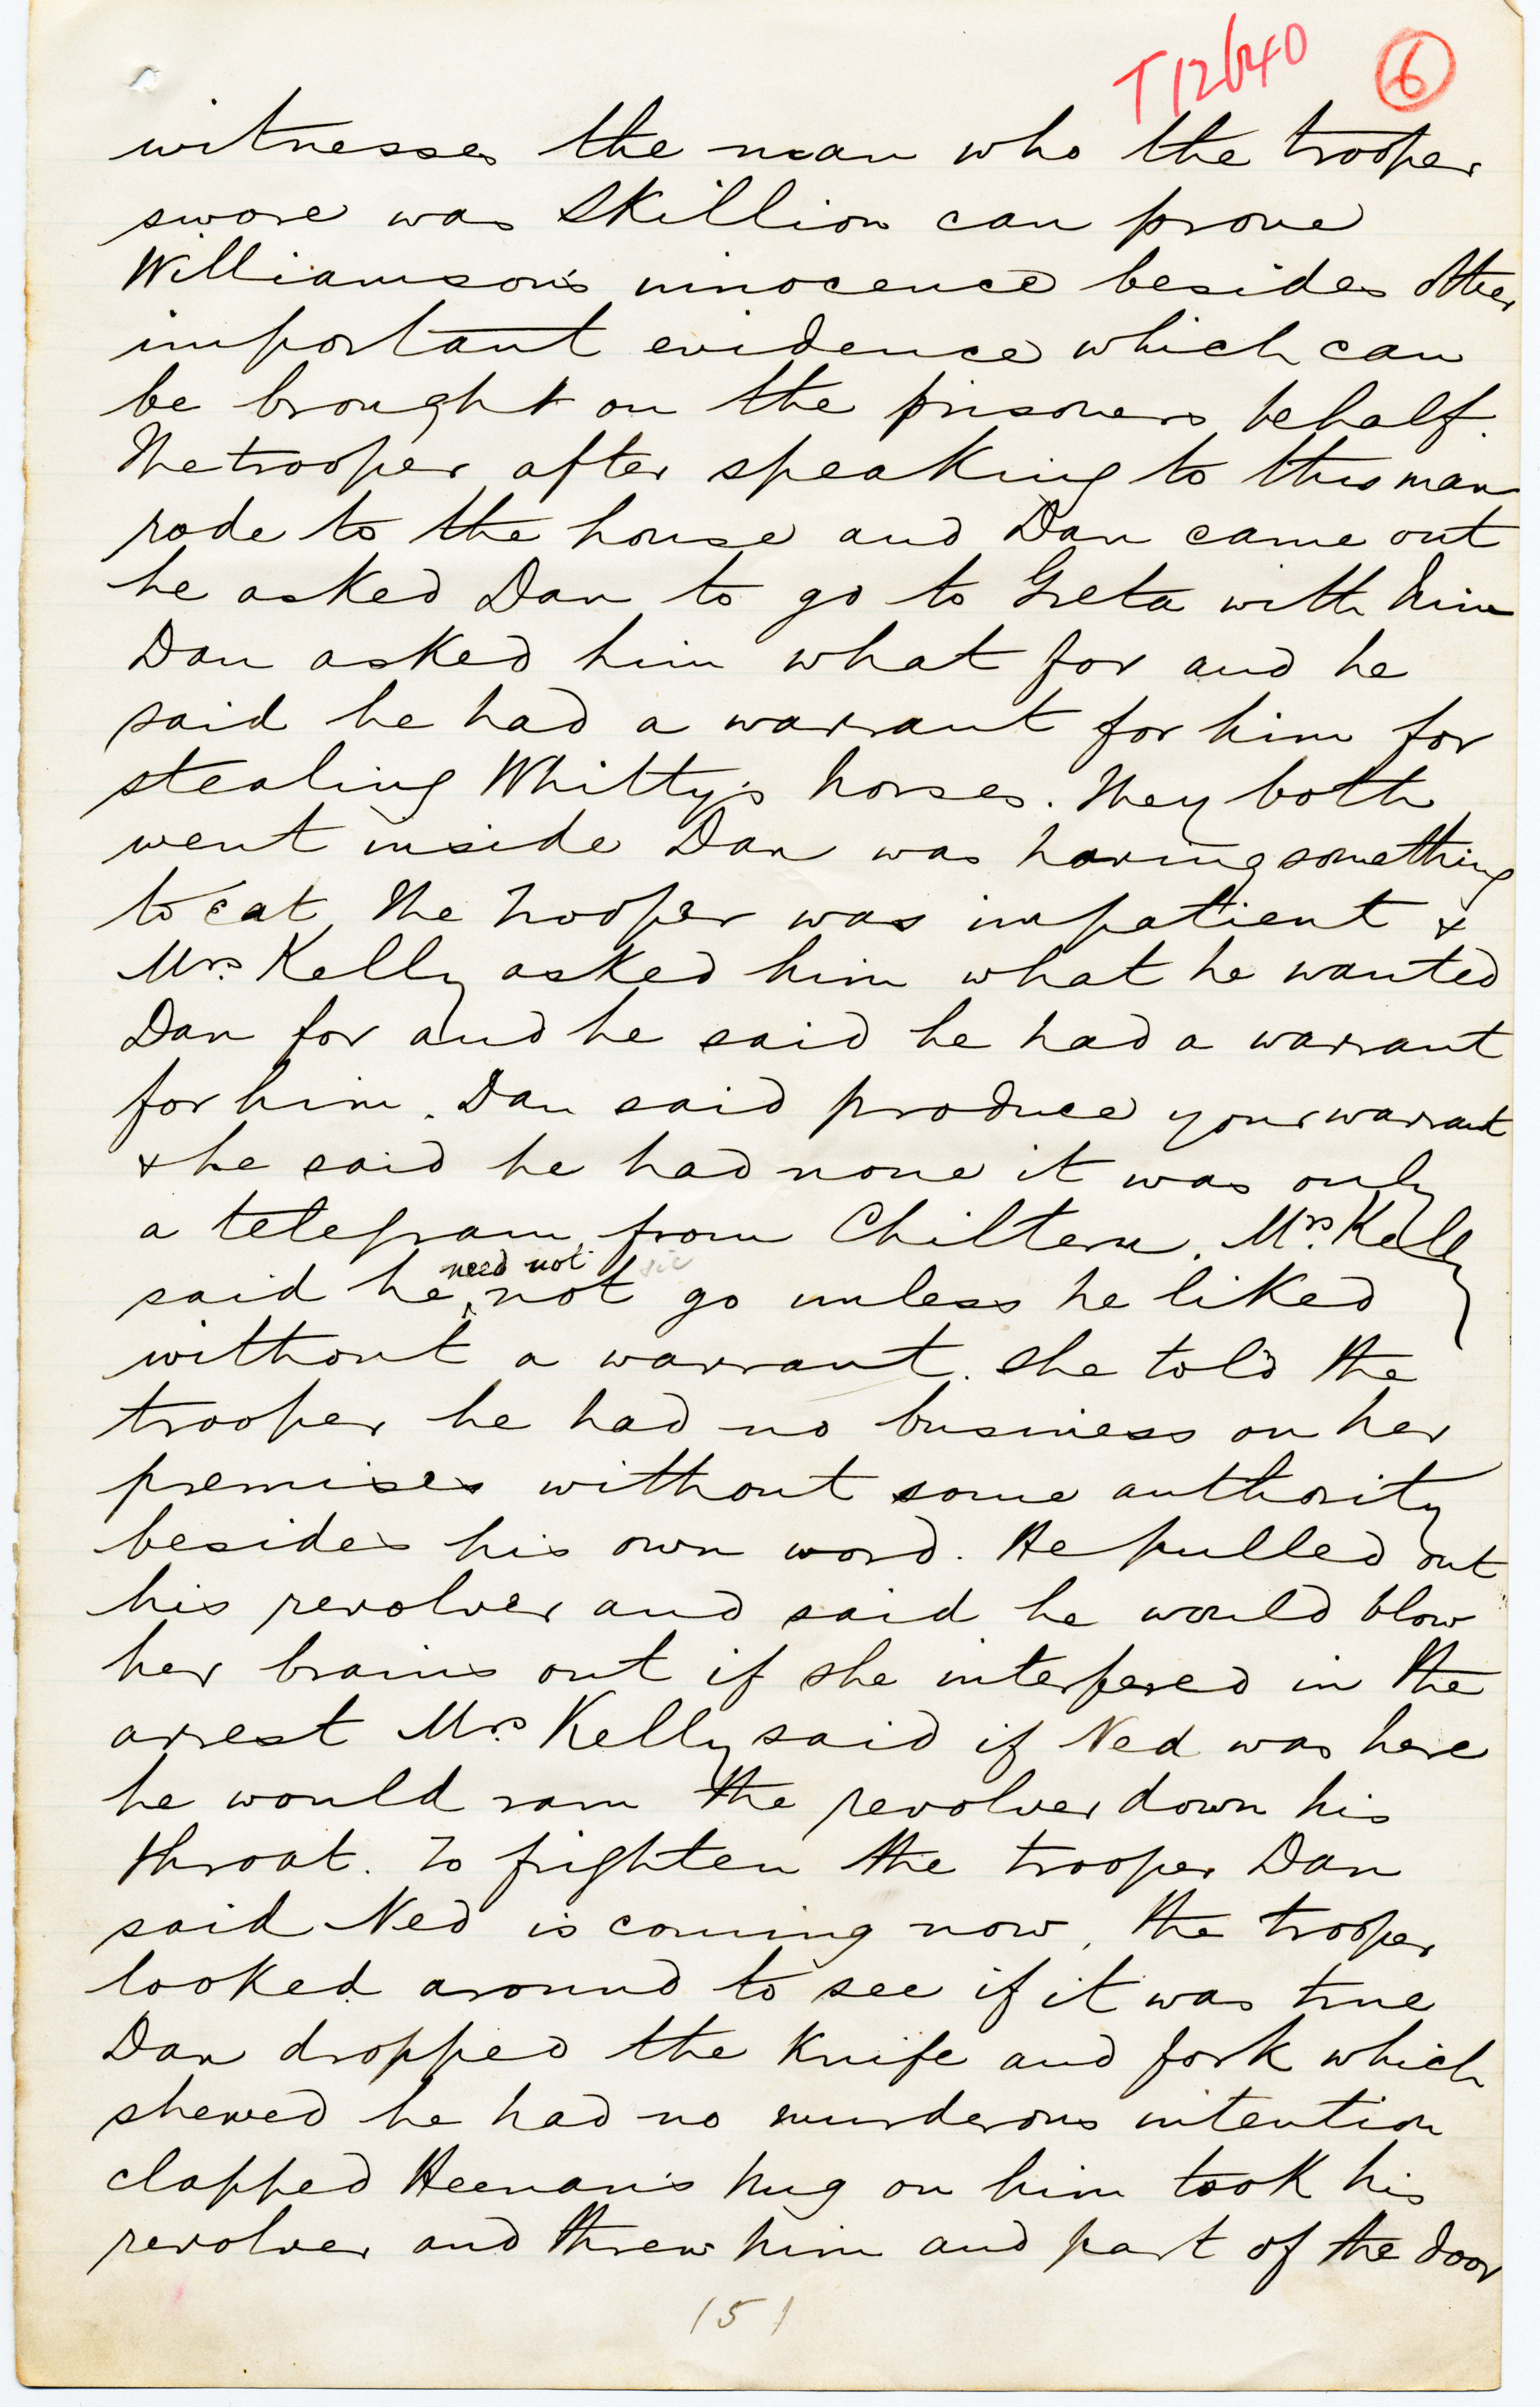 T12640 6
witnesses the man who the trooper
swore was Skillion can prove
Williamson's innocence besides other
important evidence which can
be brought on the prisoners behalf.
The trooper after speaking to this man
rode to the house and Dan came out
he asked Dan to go to Greta with him
Dan asked him what for and he
said he had a warrant for him for
stealing Whitty's horses. They both
went inside Dan was having something
to eat, the trooper was impatient &
Mrs. Kelly asked him what he wanted
Dan for and he said he had a warrant
for him. Dan said produce your warrant
& he said he had none it was only
a telegram from Chiltern. Mrs. Kelly
need not sic
said he not go unless he liked
without a warrant. She told the
trooper he had no business on her
premises without some authority
besides his own word. He pulled out
his revolver and said he would blow
her brains out if she interfered in the
arrest Mrs Kelly said if Ned was here
he would ram the revolver down his
throat. To frighten the trooper Dan
said Ned is coming now, the trooper
looked around to see if it was true
Dan dropped the knife and fork which
shewed he had no murderous intention
clapped Heenan's hug on him took his
revolver and threw him and part of the door
(5)